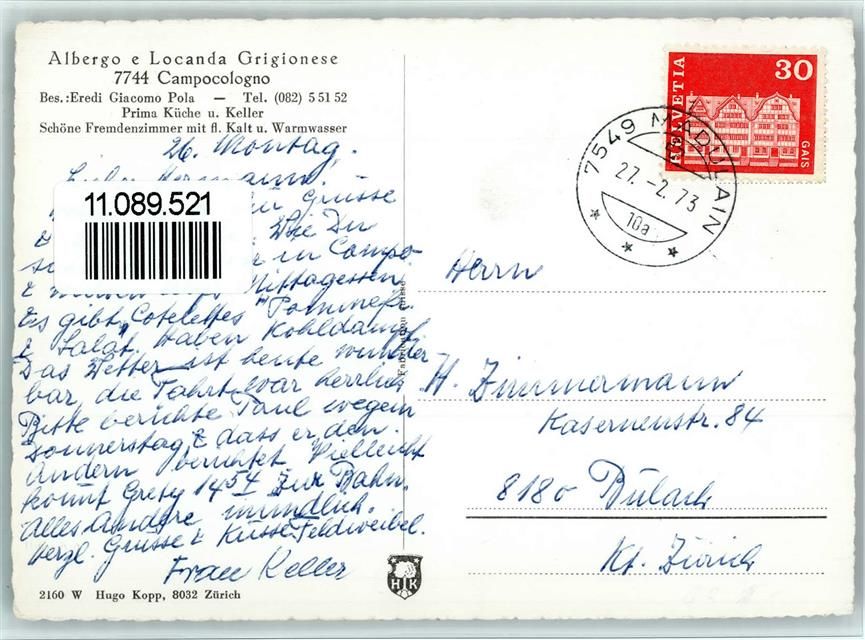 Albergo e Locanda Grigionese
7744 Campocologno
Bes.:Eredi Giacomo Pola — Tel. (082) 5 51 52
Prima Küche u. Keller
Schöne Fremdenzimmer mit fl. Kalt u. Warmwasser
26. Montag.
Grüsse
11.089.521
Wie Du
in Campo-
Mittagessen.
Es gibt Cotelettes "Pommes.
& Salat. Haben Kohldampf
Das Wetter ist heute wunder
bar, die Fahrt war herrlich
Bitte berichte Paul wegen
Donnerstag & dass er den
Andern berichtet. Vielleicht
kommt Grety 14 54 zur Bahn.
Alles Andere mündlich.
Herzl. Grüsse & Küsse Feldweibel.
Frau Keller
2160 W Hugo Kopp, 8032 Zürich
HK
HELVETIA
30
GAIS
7549 MADULAIN
27.-2.73
10a
Herrn
H. Zimmermann
Kasernenstr. 84
8180 Bülach
Kt. Zürich